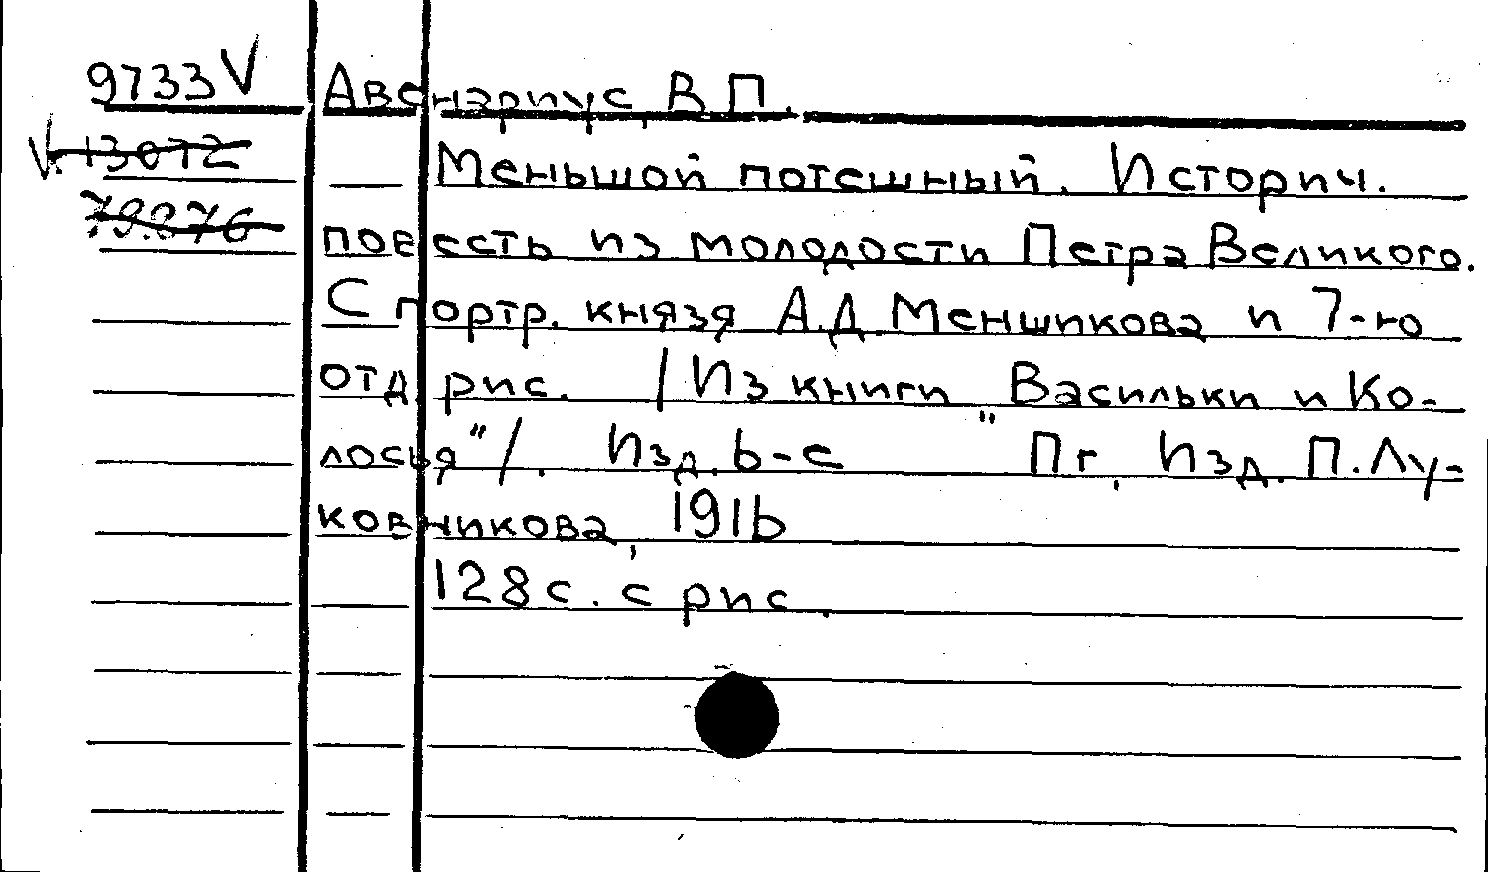 9733 V Авенариус, В.П.
V. 13072 Меньшой потешный. Историч.
79.876 повесть из молодости Петра Великого.
С портр. князя А.Д. Меншикова и 7-ю
отд. рис. / Из книги „Васильки и Ко-
лосья"/. Изд. 6-е Пг., Изд. П. Лу-
ковникова, 1916
128 с. с рис.